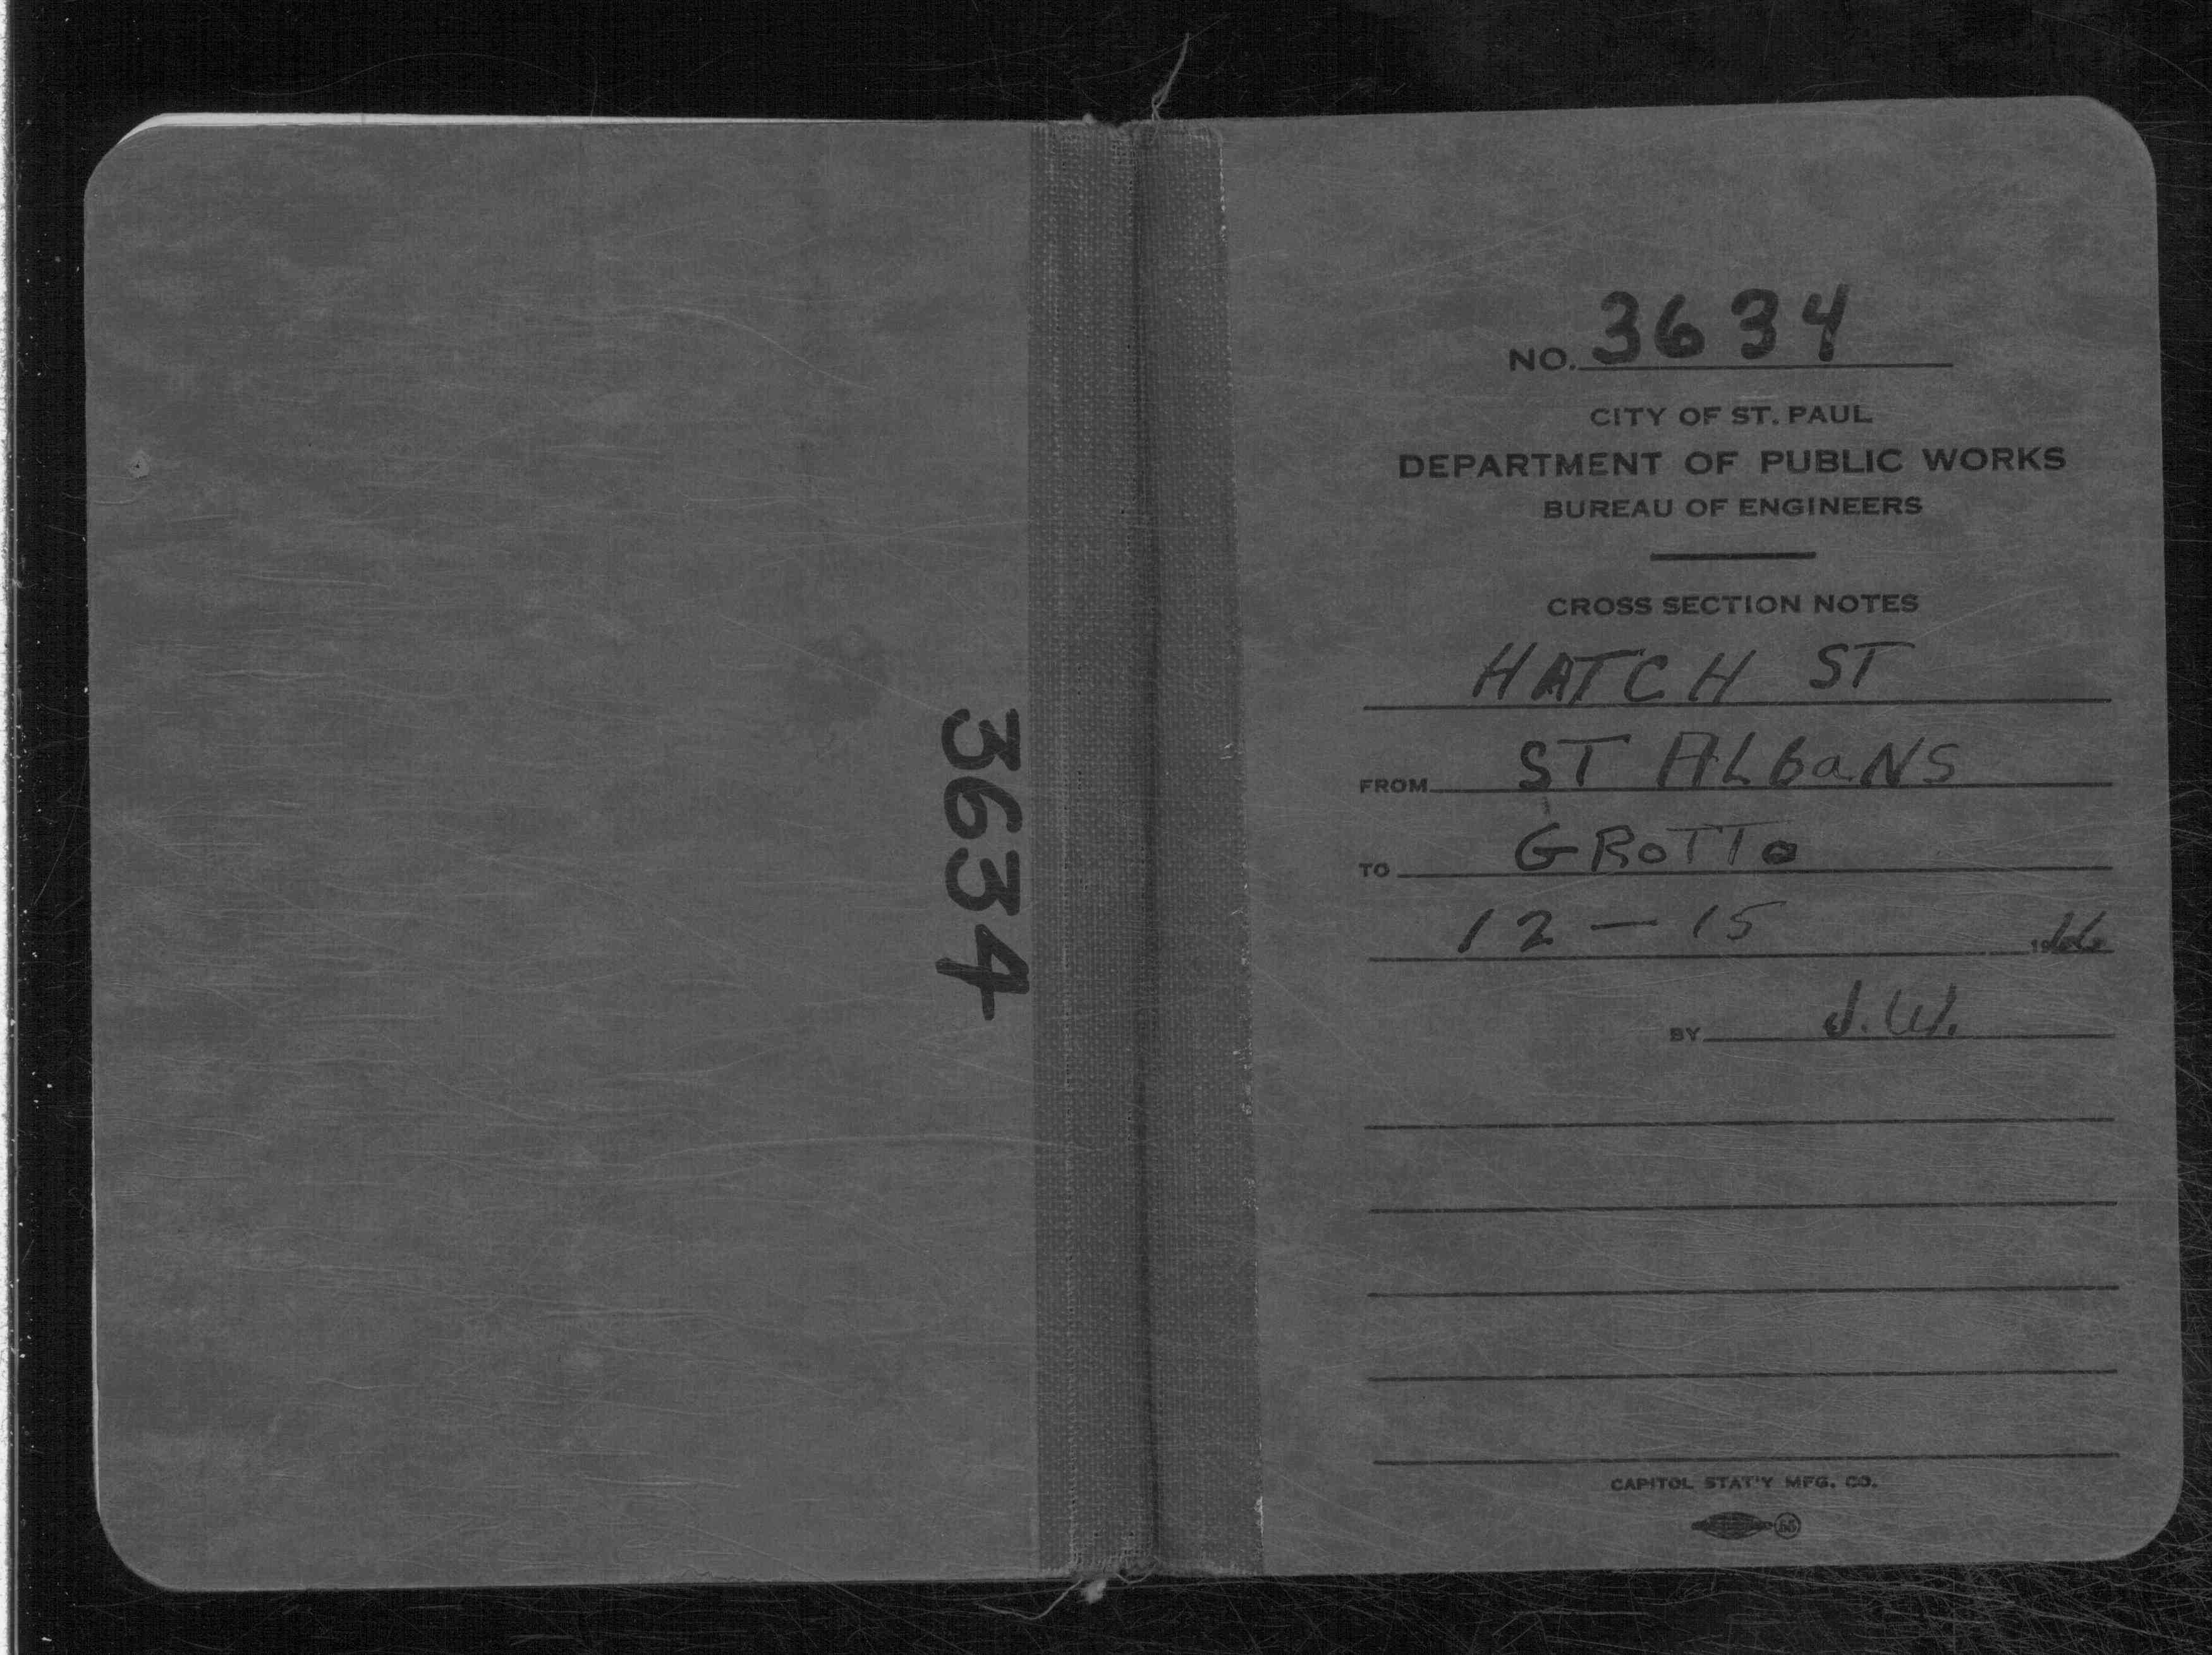 3634
NO. 3634
CITY OF ST. PAUL
DEPARTMENT OF PUBLIC WORKS
BUREAU OF ENGINEERS
CROSS SECTION NOTES
HATCH ST
FROM ST ALbaNS
TO GROTTO
12 — 15 1966
BY J.W.
CAPITOL STAT'Y MFG. CO.